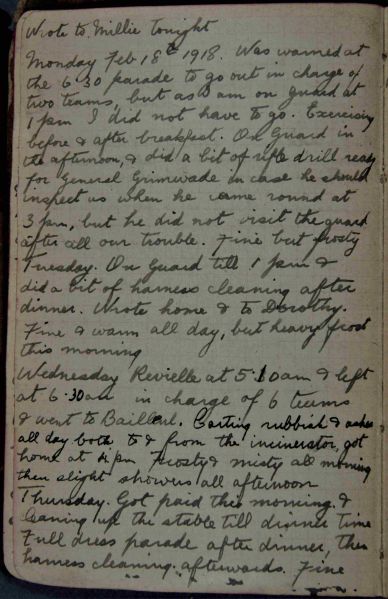 Wrote to Millie tonight
Monday Feb 18th 1918. Was warned at
the 6.30 parade to go out in charge of
two teams, but as I am on guard at
1 pm I did not have to go. Exercising
before & after breakfast. On Guard in
the afternoon, & did a bit of rifle drill ready
for General Grimwade in case he should
inspect us when he came round at
3 pm, but he did not visit the guard
after all our trouble. Fine but frosty
Tuesday. On Guard till 1 pm &
did a bit of harness cleaning after
dinner. Wrote home & to Dorothy.
Fine & warm all day, but heavy frost
this morning
Wednesday Revielle at 5.10am & left
at 6.30am in charge of 6 teams
& went to Bailleul. Carting rubbish & ashes
all day both to & from the incinerator, got
home at 4 pm Frosty & misty all morning
then slight showers all afternoon
Thursday. Got paid this morning &
cleaning up the stable till dinner time
Full dress parade after dinner, then
harness cleaning afterwards. Fine